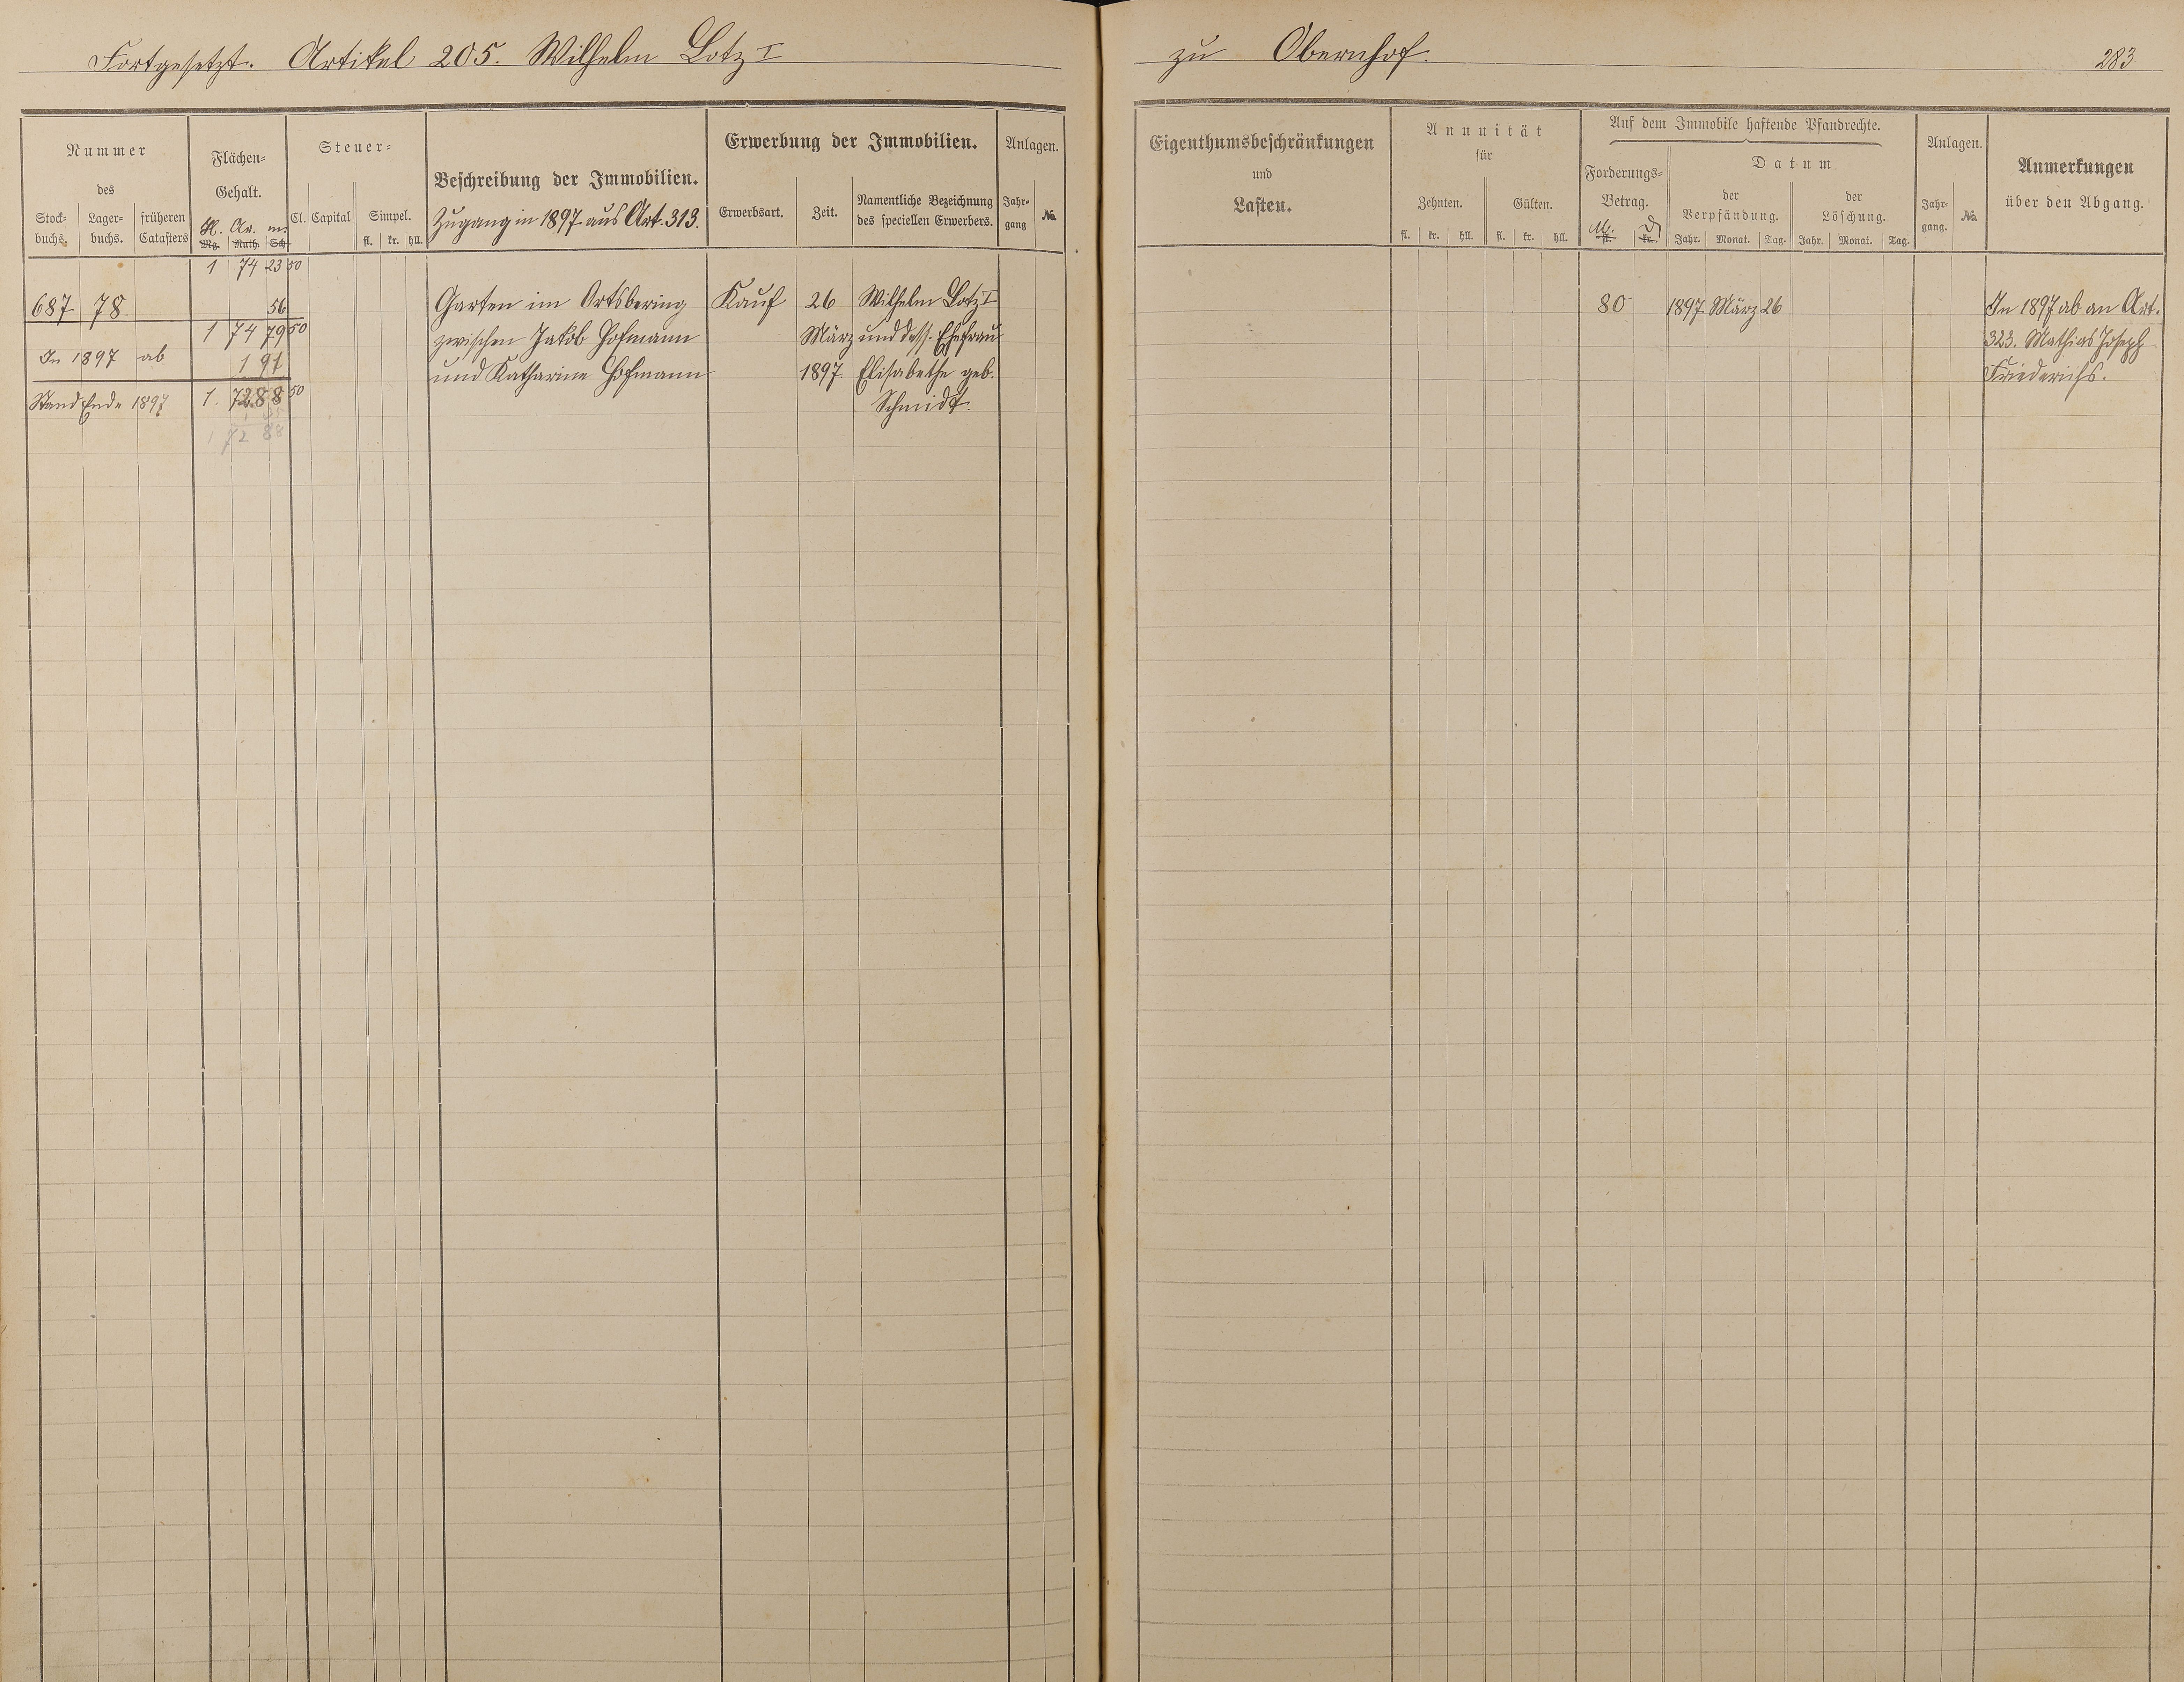 Fortgesetzt. Artikel 205. Wilhelm Lotz I
zu Obernhof.
283
Nummer
des
Stock-
buchs.
Lager-
buchs.
früheren
Catasters
Flächen-
Gehalt.
H. Ar. m.
Mg. Ruth. Sch.
Steuer-
Cl. Capital Simpel.
fl. kr. hll.
Beschreibung der Immobilien.
Zugang in 1897 aus Art. 313.
Erwerbung der Immobilien.
Erwerbsart. Zeit.
Namentliche Bezeichnung
des speciellen Erwerbers.
Anlagen.
Jahr-
gang
No.
1 74 23 50
687 78. 56 Garten im Ortsbering Kauf 26 Wilhelm Lotz I
1 74 79 50 zwischen Jakob Hofmann März und dess. Ehefrau
In 1897 ab 1 91 und Katharine Hofmann 1897. Elisabethe geb.
Stand Ende 1897 1. 72 88 50 Schmidt.
1 72 88
Eigenthumsbeschränkungen
und
Lasten.
Annuität
für
Zehnten. Gülten.
fl. kr. hll. fl. kr. hll.
Auf dem Immobile haftende Pfandrechte.
Forderungs-
Betrag.
M. d
fl. kr.
Datum
der
Verpfändung.
der
Löschung.
Jahr. Monat. Tag. Jahr. Monat. Tag.
Anlagen.
Jahr-
gang.
No.
Anmerkungen
über den Abgang.
80 1897. März 26 In 1897 ab an Art.
323. Mathias Joseph
Friederichs.